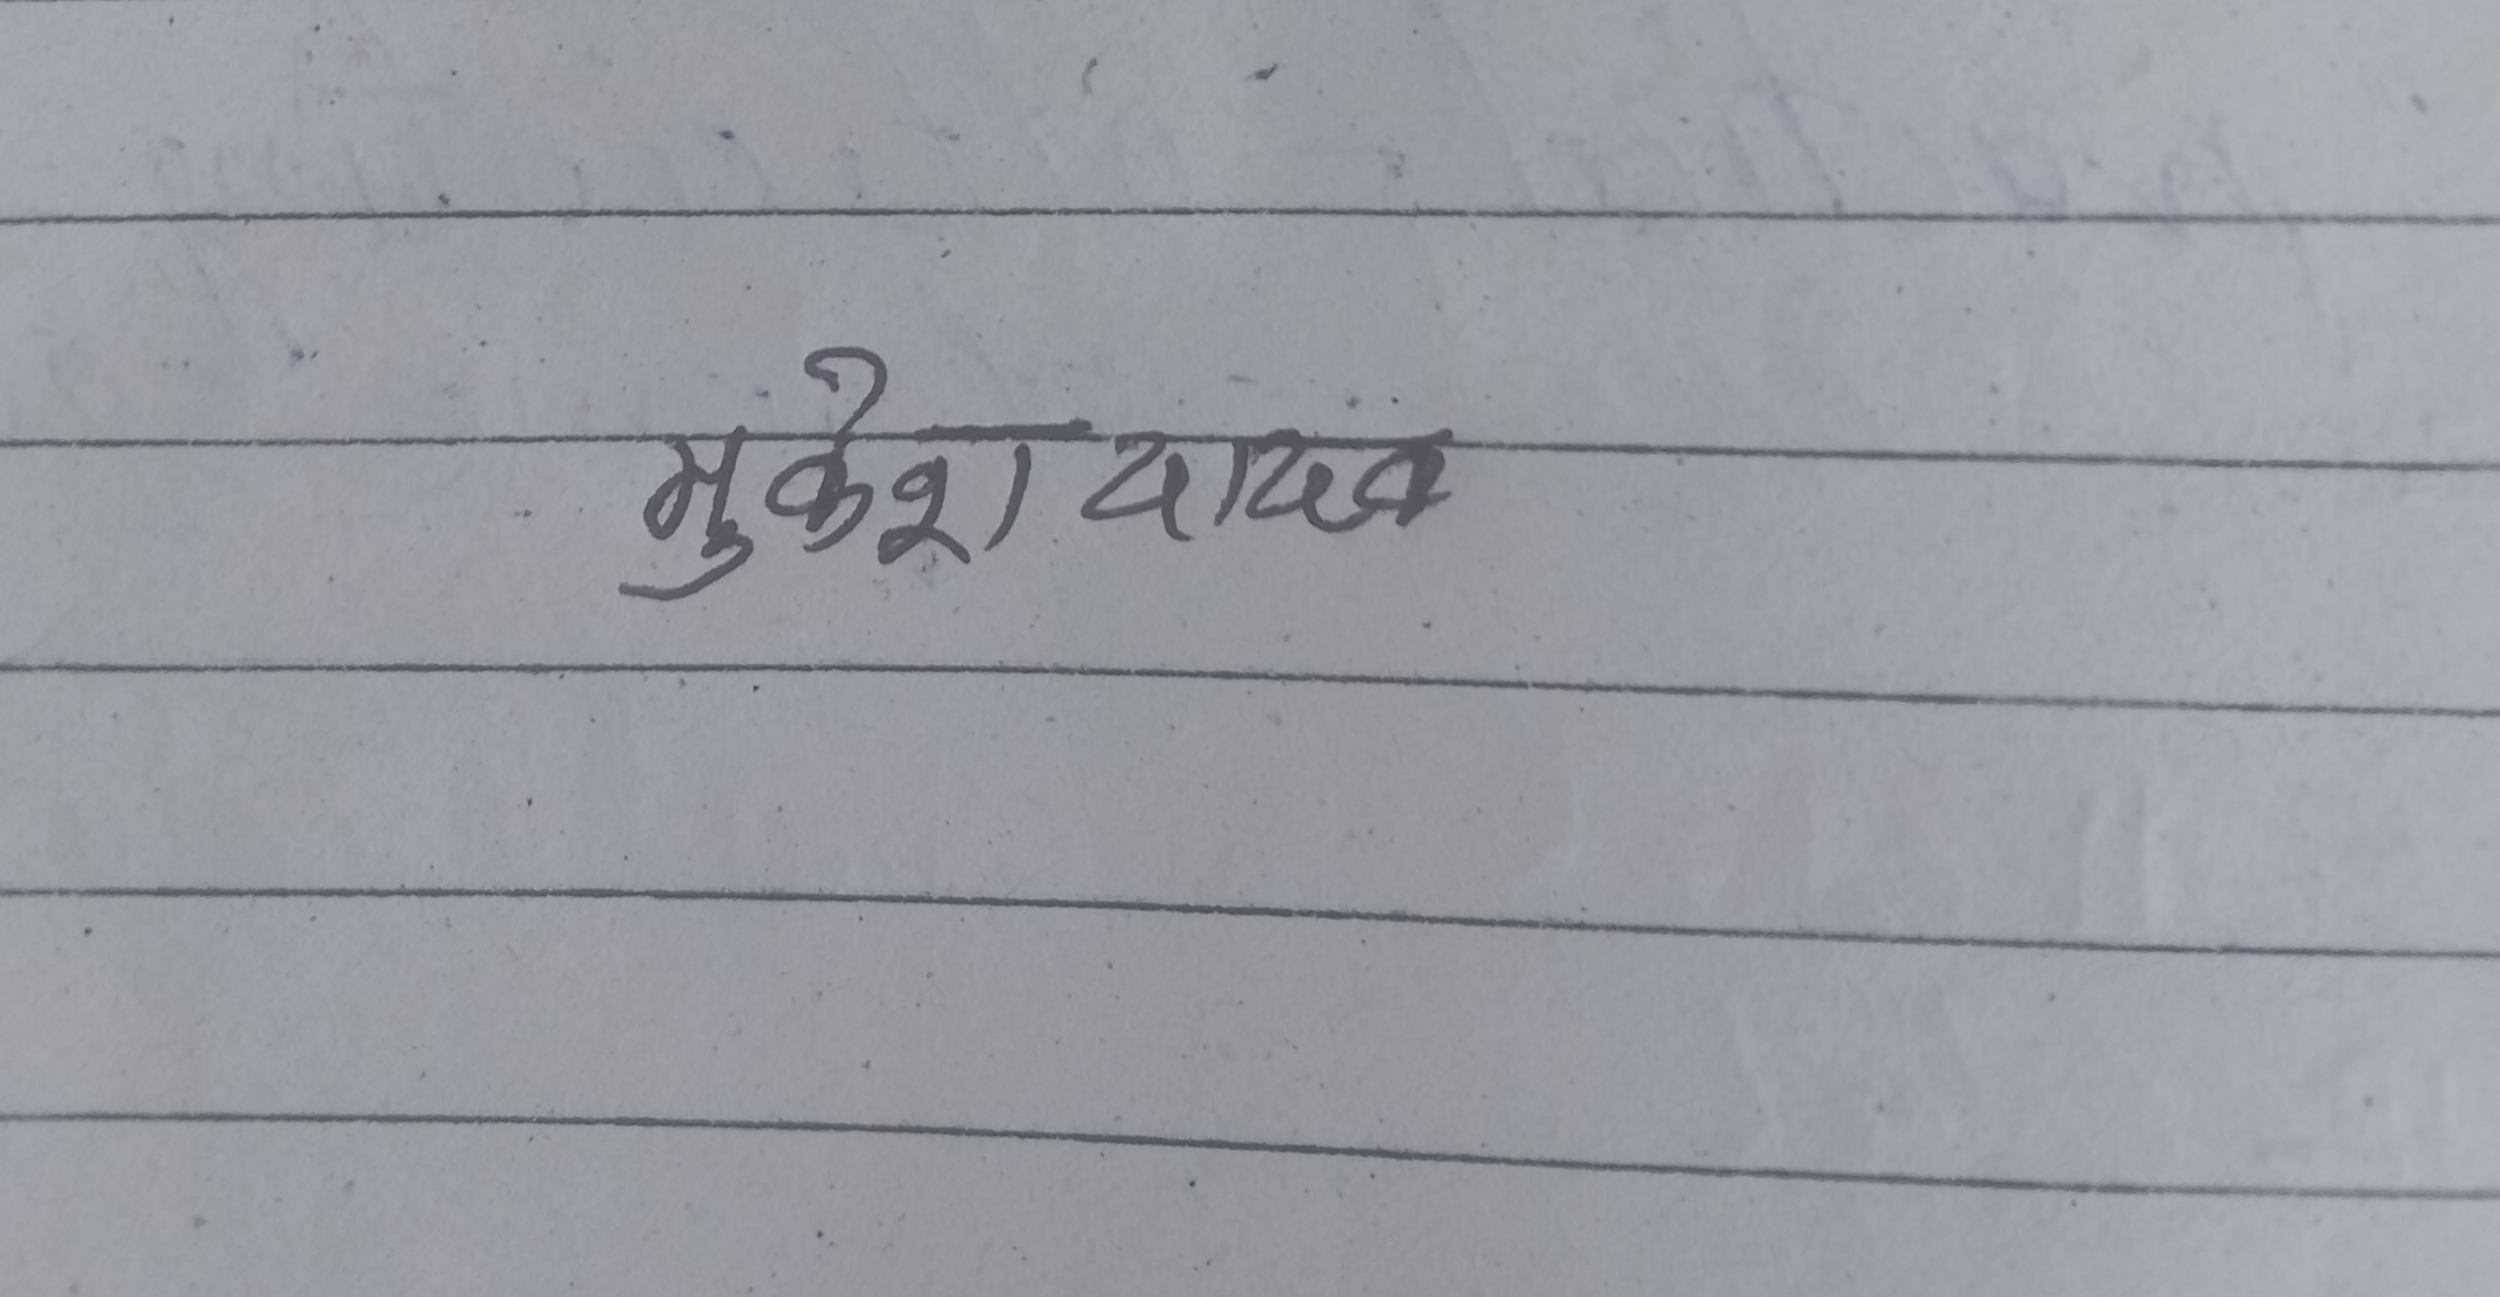 मुकेश यादव